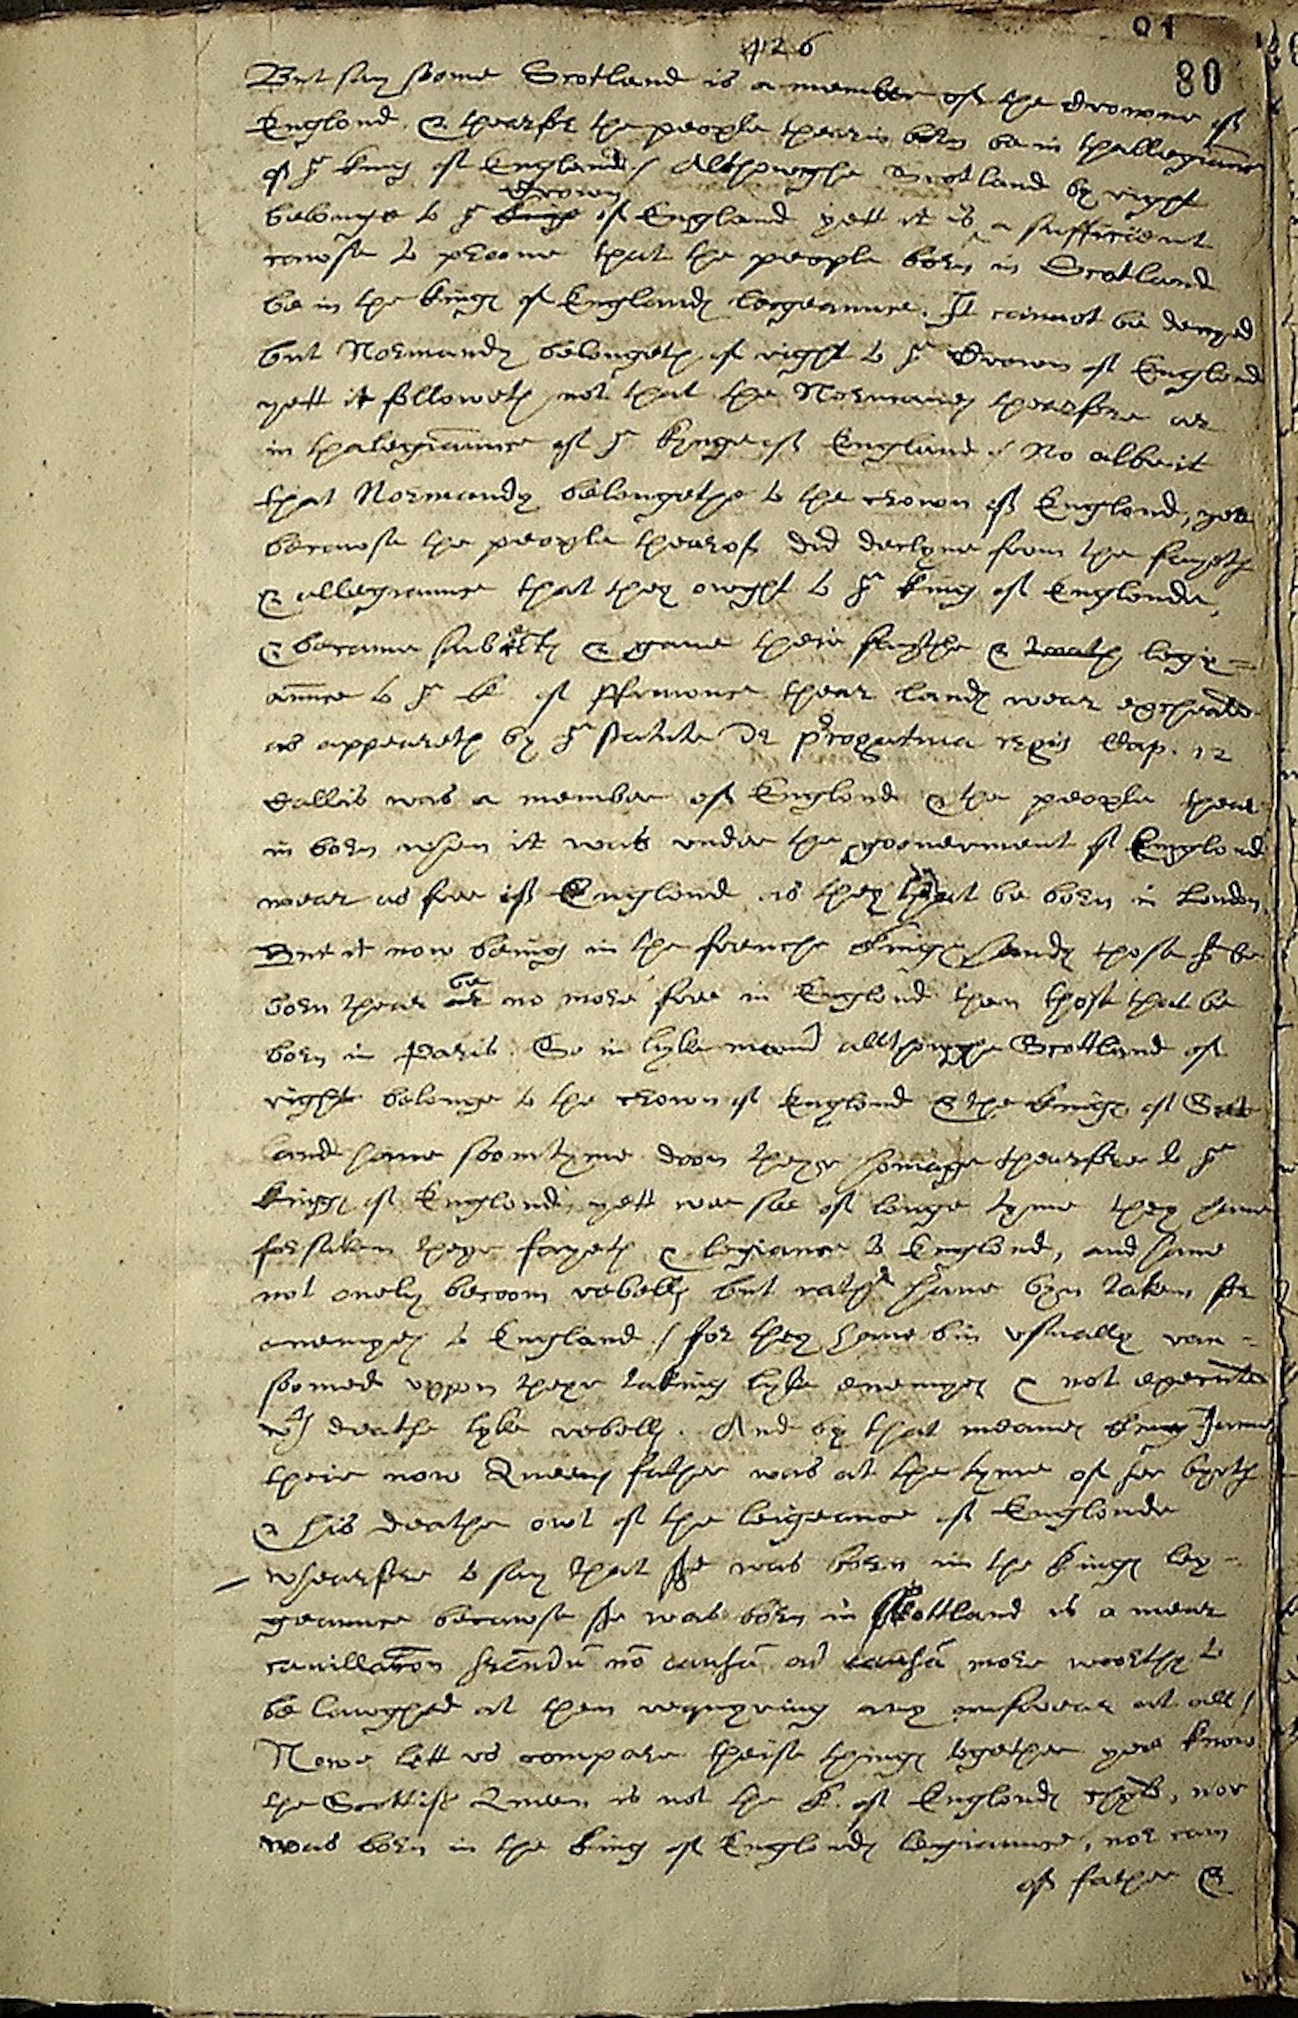 126
91
80
But say soome Scotland is a member of the Crowne of
Englond, & thearfor the people thearin born be in thallegiaunce
of yͤ king of England / Althowghe Scotland by right
Crown
belonge to yͤ kinge of England yett it is a sufficient
cawse to prooue that the people born in Scotland
be in the kings of Englands legeaunce. It cannot be denyed
but Normandy belongeth of right to yͤ Crown of Englond
yett it followeth not that the Normanes thearfore ar
in thalegiaunce of yͤ kynge of England / No albeit
that Normandy belongethe to the crown of Englond, yet
becawse the people thearof did declyne from the fayeth
& allegiaunce that they owght to yͤ king of Englonde,
& became subiects & gaue their faythe & legi=
aunce to yͤ k of ffraunce thear lands wear excheated
as appeareth by yͤ statute de prerogatiua regis Cap. 12
Callis was a member of Englond & the people thear
in born when it was vnder the gouerment of Englond
wear as free of Englond as they that be born in London,
But it now being in the frenche kings hands those yͭ be
be
born thear ar no more free in Englond then those that be
born in Paris. So in lyke maner allthowghe Scottland of
right belonge to the crown of Englond & the kings of Scot
land haue soomtyme doon theyr homage thearfore to yͤ
kings of Englond, yett wee see of longe tyme they haue
forsaken theyr fayeth & legiance to Englond, and haue
not onely becoom rebells but rather haue byn taken for
enemyes to England / for they haue bin vsually ran=
soomed vppon theyr taking lyke enemyes & not executed
wͭʰ deathe lyke rebells. And by that meanes king James
their now Queens father was at the tyme of her byrth
& his deathe owt of the leigeance of Englonde
whearfore to say that she was born in the kings ley=
geaunce becawse she was born in Scottland is a mear
cauillac̄on secūdū nō causā ad causā more woorthy to
be lawghed at then requyring any answear at all /
Nowe lett vs compare theise things together yee know
the Scottish Queen is not the k. of Englonds chyld, nor
was born in the king of Englonds legiaunce, nor cam
of father &